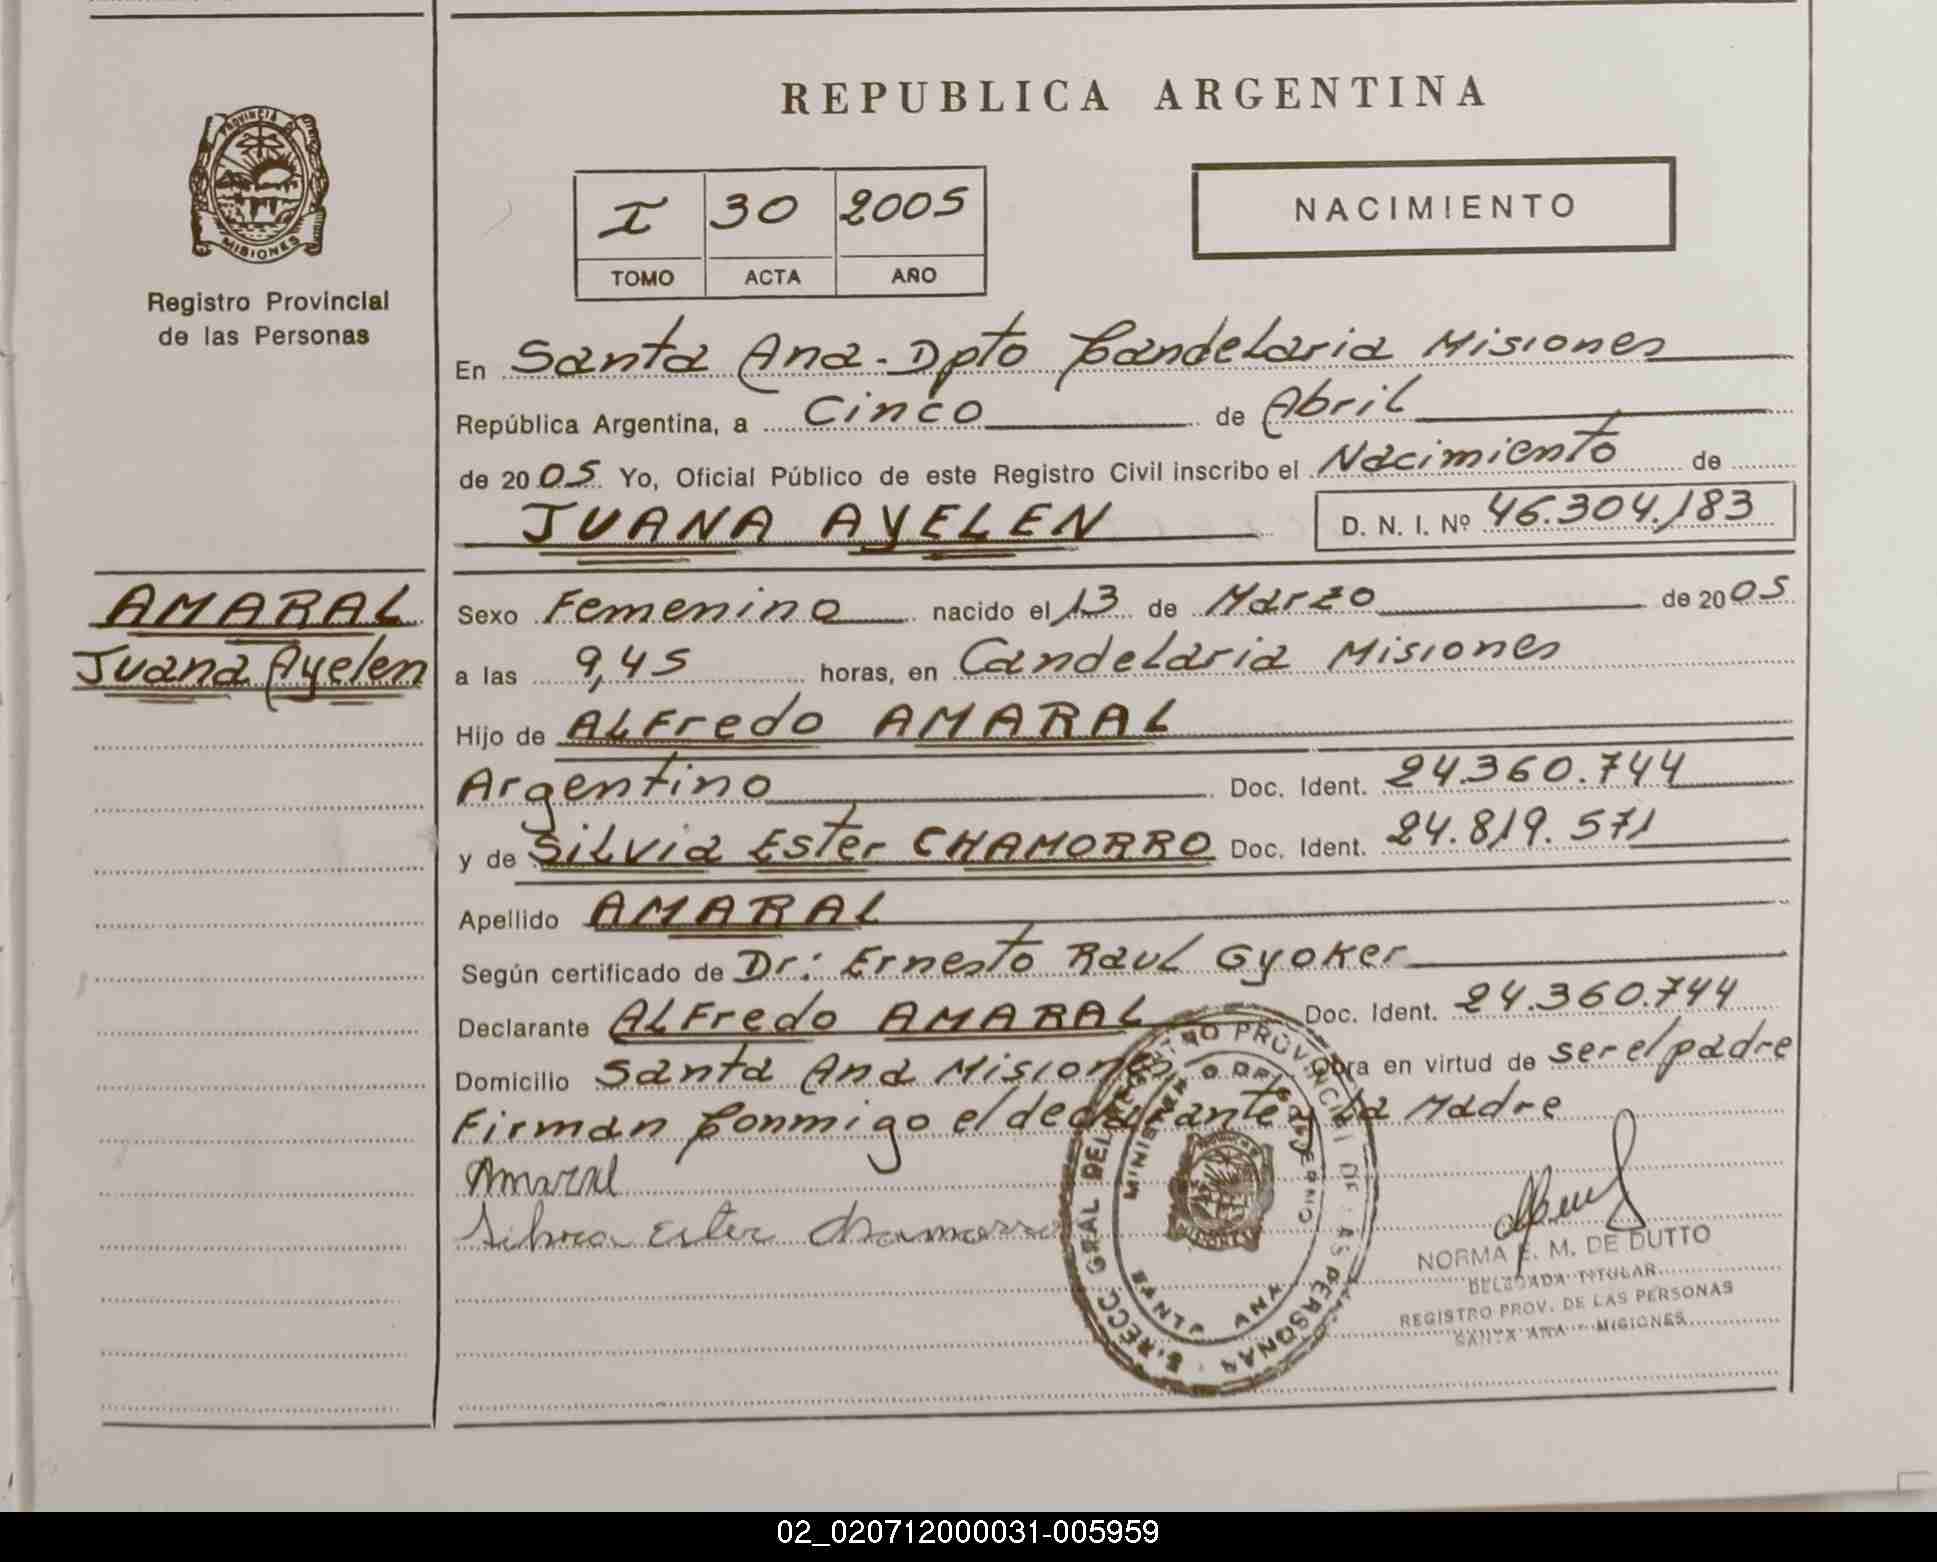 REPUBLICA ARGENTINA
PROVINCIA DE
MISIONES
Registro Provincial
de las Personas
I 30 2005
TOMO ACTA AÑO
NACIMIENTO
En Santa Ana - Dpto Candelaria Misiones
República Argentina, a Cinco de Abril
de 2005 Yo, Oficial Público de este Registro Civil inscribo el Nacimiento de
JUANA AYELEN D. N. I. Nº 46.304.183
AMARAL
Juana Ayelen
Sexo Femenino nacido el 13 de Marzo de 2005
a las 9,45 horas, en Candelaria Misiones
Hijo de ALFredo AMARAL
Argentino Doc. Ident. 24.360.744
y de Silvia Ester CHAMORRO Doc. Ident. 24.819.571
Apellido AMARAL
Según certificado de Dr: Ernesto Raul Gyoker
Declarante ALFredo AMARAL Doc. Ident. 24.360.744
Domicilio Santa Ana Misiones Obra en virtud de ser el padre
Firman Conmigo el declarante y la Madre
Amaral
Silvia Ester Chamorro
DIRECC. GRAL DEL REGISTRO PROVINCIAL DE LAS PERSONAS
MINISTERIO DE GOBIERNO
MISIONES
SANTA ANA
NORMA E. M. DE DUTTO
DELEGADA TITULAR
REGISTRO PROV. DE LAS PERSONAS
SANTA ANA - MISIONES
02_020712000031-005959